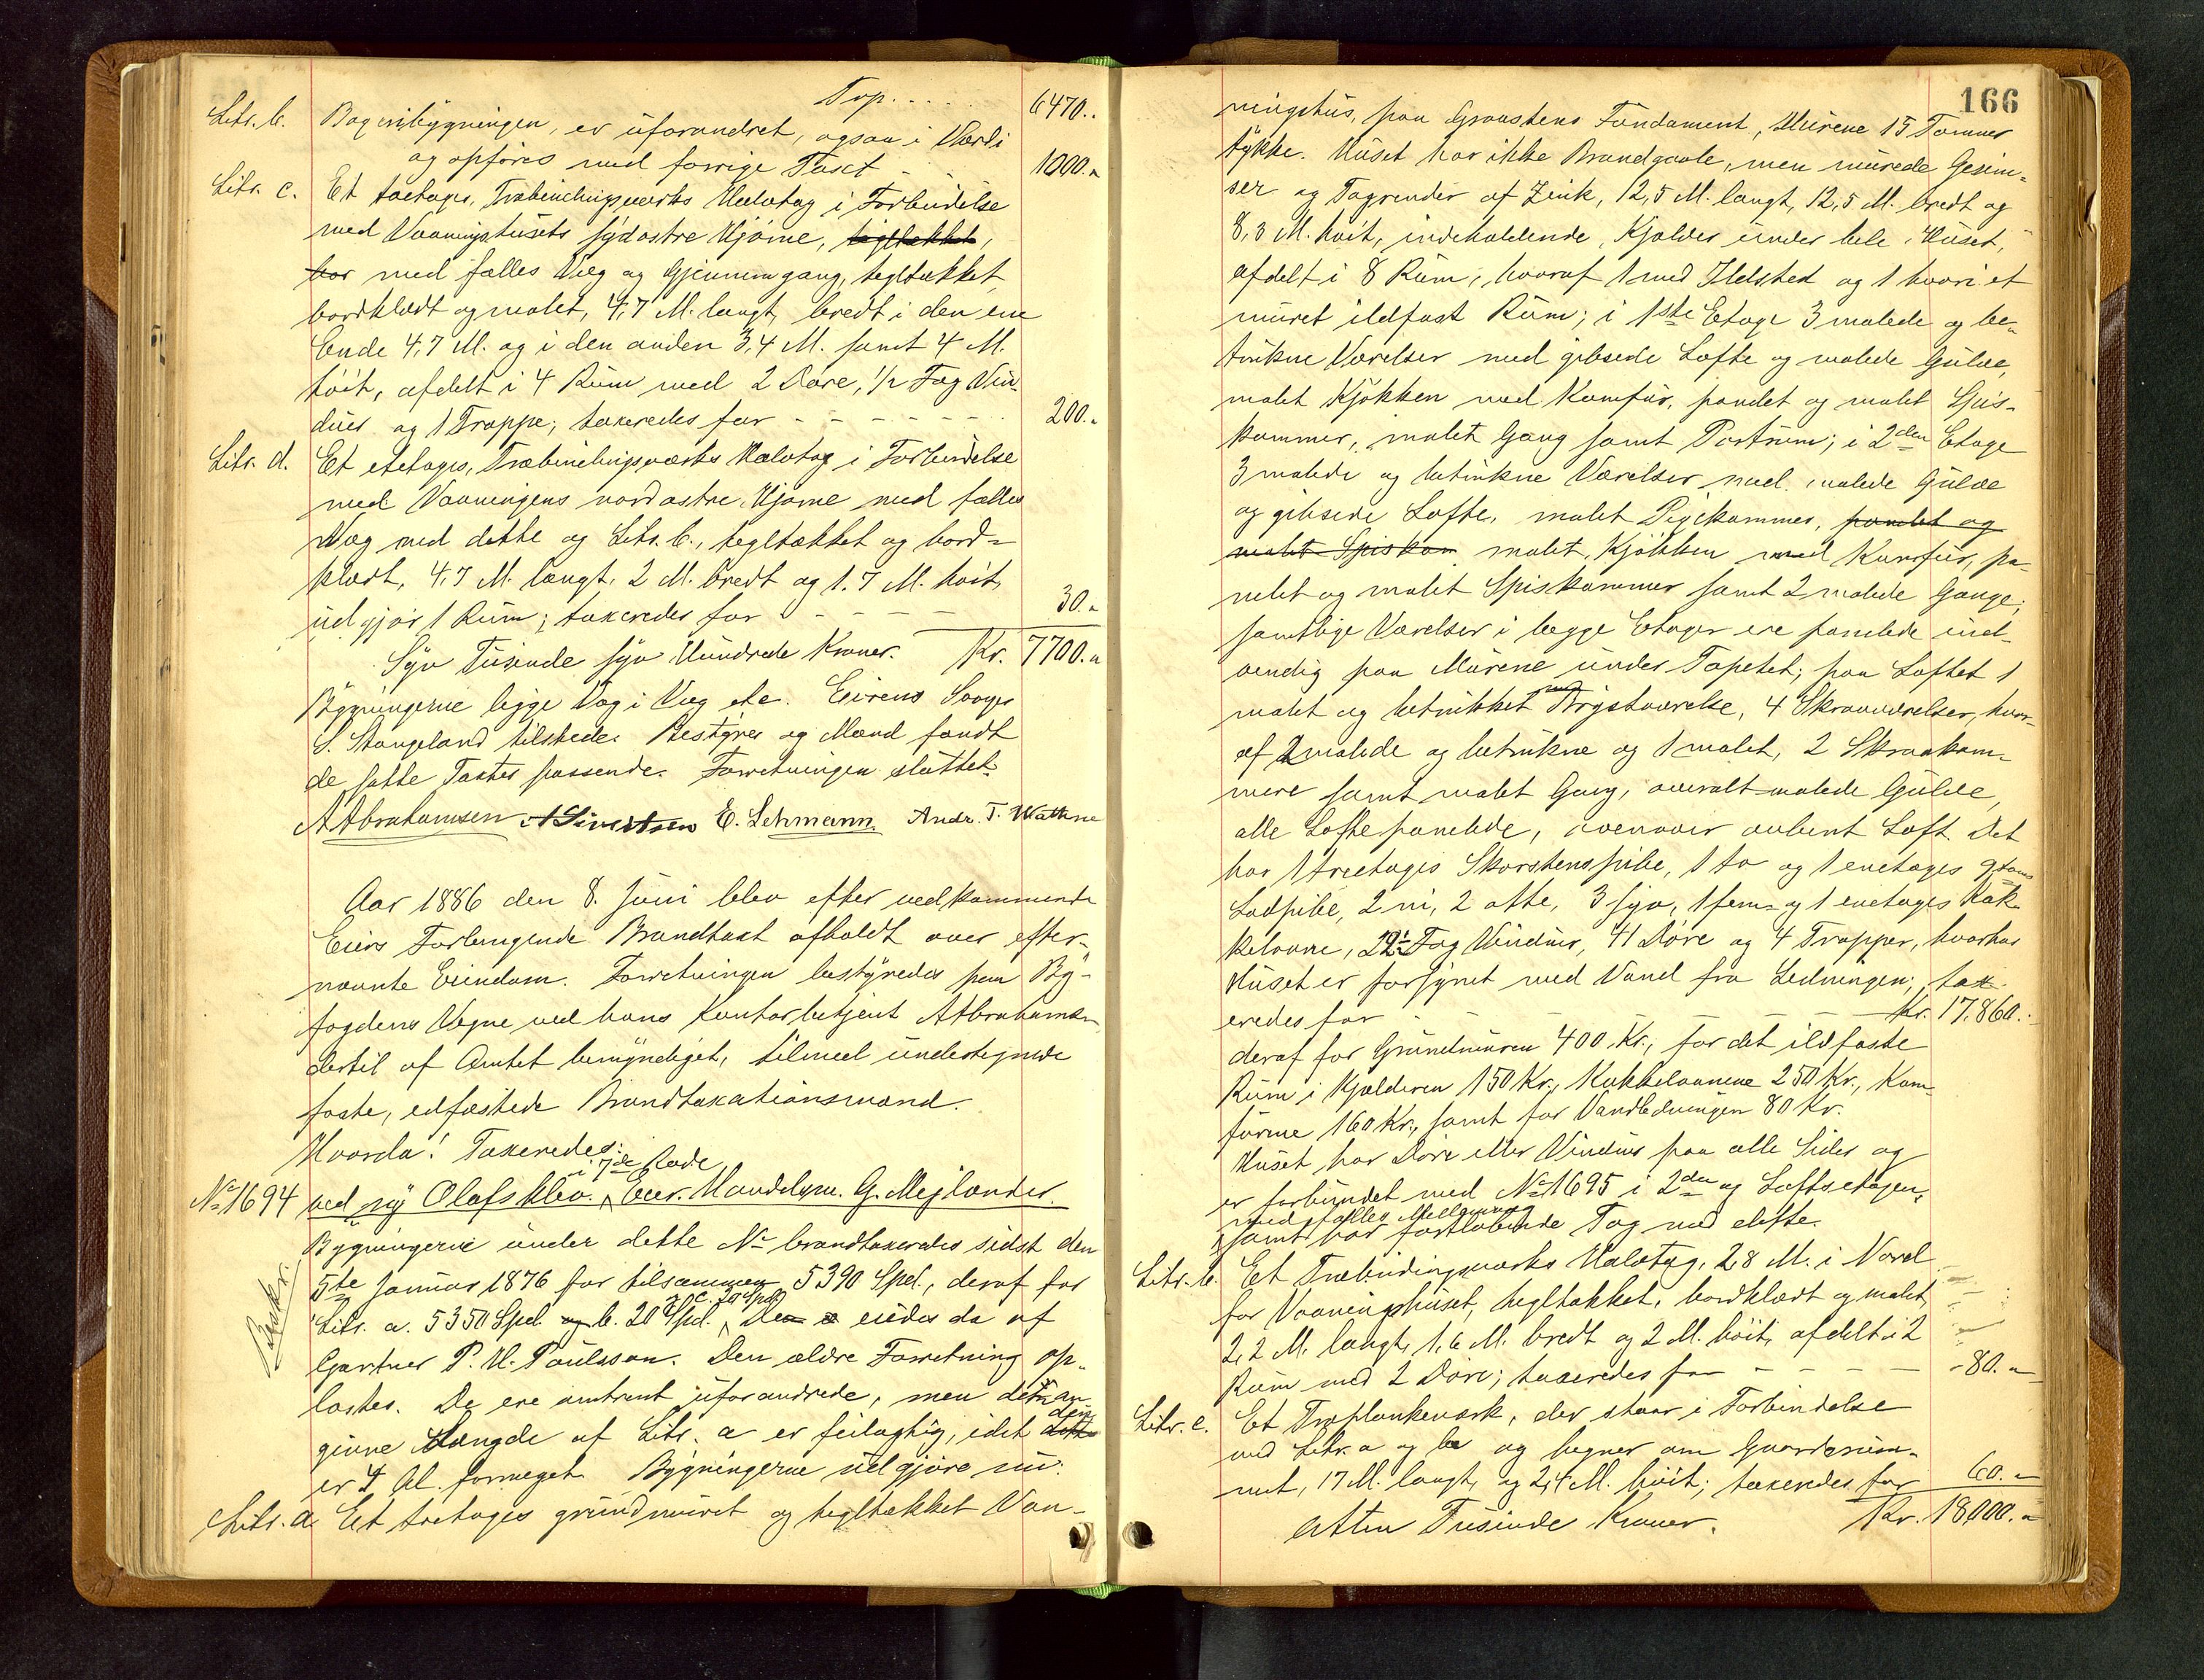 Trp. . . . . 6470.„
Litr. b. Bageribygningen, er uforandret, ogsaa i Værdi
og opføres med forrige Taxt - - 1000.„
Litr. c. Et toetages, Træbindingsværks Halvtag i Forbindelse
med Vaaningshusets sydøstre Hjørne, tegltækket,
har med fælles Væg og Gjennemgang, tegltækket,
bordklædt og malet, 4,7 M. langt, bredt i den ene
Ende 4,7 M. og i den anden 3,4 M. samt 4 M.
høit, afdelt i 4 Rum med 2 Døre, 1/2 Fag Vin-
duer og 1 Trappe; taxeredes for - - - - - - 200.„
Litr. d. Et etetages, Træbindingsværks Halvtag i Forbindelse
med Vaaningens nordøstre Hjørne med fælles
Væg med dette og Litr. b., tegltækket og bord-
klædt, 4,7 M. langt, 2 M. bredt og 1.7 M. høit,
udgjør 1 Rum; taxeredes for - - - - 30.„
Syv Tusinde syv Hundrede Kroner. Kr. 7700.„
Bygningerne ligge Væg i Væg etc. Eierens Svoger
S. Stangeland tilstede. Bestyrer og Mænd fandt
de satte Taxter passende. Forretningen sluttet.
A Abrahamsen A Sivertsen E. Lehmann. Andr. T. Wathne
Aar 1886 den 8. Juni blev efter vedkommende
Eiers Forlangende Brandtaxt afholdt over efter-
nævnte Eiendom. Forretningen bestyredes paa By-
fogdens Vegne ved hans Kontorbetjent Abrahamsen
dertil af Amtet bemyndiget, tilmed undertegnede
faste, edfæstede Brandtaxationsmænd.
Hvorda! Taxeredes:
i 7de Rode
No 1694 ved ny Olafsklev. Eier. Handelsm. G. Mejlænder.
Bygningerne under dette No brandtaxeredes sidst den
5te Januar 1876 for tilsammen 5390 Spd., deraf for
c. 20 Spd
Litr. a. 5350 Spd. og b. 20 Spd. De eiedes da af
Gartner P. H. Poulsson. Den ældre Forretning op-
læstes. De ere omtrent uforandrede, men den an-
den
givne Længde af Litr. a er feilagtig, idet
er 4 Al. formeget. Bygningerne udgjøre nu:
Litr. a. Et toetages grundmuret og tegltækket Vaa-
Beskr.
166
ningshus, paa Graastens Fundament, Murene 15 Tommer
tykke. Huset har ikke Brandgavle, men murede Gesim-
ser og Tagrender af Zink, 12,5 M. langt, 12,5 M. bredt og
8,3 M. høit, indeholdende, Kjælder under hele Huset,
afdelt i 8 Rum, hvoraf 1 med Ildsted og 1 hvori et
muret ildfast Rum; i 1ste Etage 3 malede og be-
trukne Værelser med gibsede Lofte og malede Gulve,
malet Kjøkken med Komfur, panelet og malet Spis-
kammer, malet Gang samt Portrum; i 2den Etage
3 malede og betrukne Værelser med malede Gulve
og gibsede Lofte, malet Pigekammer, panelet og
malet Spiskam malet Kjøkken med Komfur, pa-
nelet og malet Spiskammer samt 2 malede Gange;
samtlige Værelser i begge Etager ere panelede ind-
vendig paa Murene under Tapetet; paa Loftet 1
malet og betrukket Kvistværelse, 4 Skraaværelser, hvor-
af 2 malede og betrukne og 1 malet, 2 Skraakam-
mere samt malet Gang, overalt malede Gulve,
alle Lofte panelede, ovenover aabent Loft. Det
har 1 treetages Skorstenspibe, 1 to og 1 enetages
Lodpibe, 2 ni, 2 otte, 3 syv, 1 fem- og 1 enetages Kak-
kelovne, Fag Vinduer, 41 Døre og 4 Trapper, hvorhos
Huset er forsynet med Vand fra Ledningen; tax-
eredes for - - - - - - Kr. 17,860.„
deraf for Grundmuren 400 Kr., for det ildfaste
Rum i Kjælderen 150 Kr., Kakkelovnene 250 Kr., Kom-
furene 160 Kr., samt for Vandledningen 80 Kr.
Huset har Døre eller Vinduer paa alle Sider og
er forbundet med No 1695 i 2den og Loftsetagen,
med fælles Mellemvæg
samt har fortløbende Tag med dette.
Litr. b. Et Træbindingsværks Halvtag, 2,8 M. i Nord
for Vaaningshuset, tegltækket, bordklædt og malet,
2,2 M. langt, 1,6 M. bredt og 2 M. høit, afdelt i 2
Rum med 2 Døre; taxeredes for - - - - 80.„
Litr. c. Et Træplankeværk, der staar i Forbindelse
med Litr. a og b og hegner om Gaardsrum-
met, 17 M. langt, og 2,4 M. høit; taxeredes for 60.„
Atten Tusinde Kroner. Kr. 18,000.„